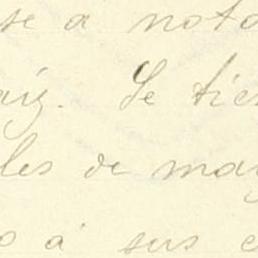 se a nota
aiz. Se tien
les de may
o á sus e